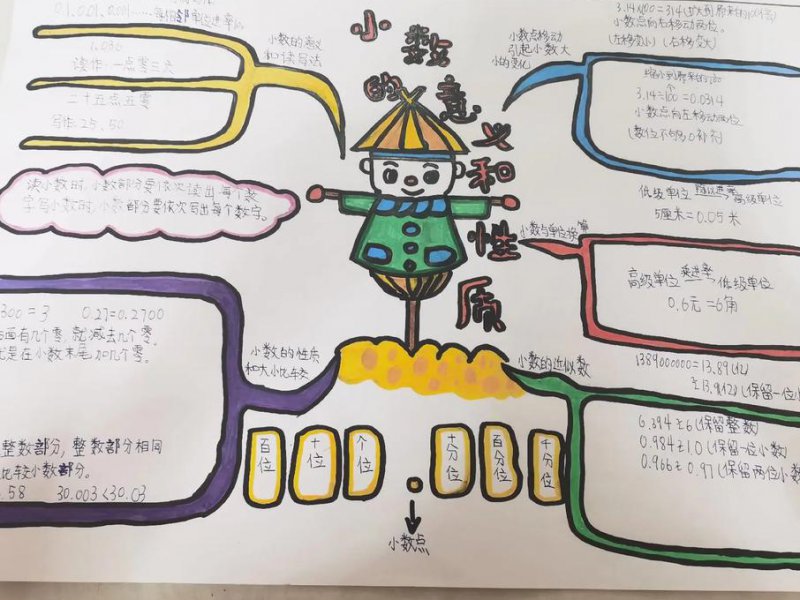 小数的意义和性质
小数的意义
和读写法
0.1, 0.01, 0.001……每相邻单位进率
读作:一点零三六
二十五点五零
写作:25.50
读小数时,小数部分要依次读出每个数
字写小数时,小数部分要依次写出每个数字。
小数的性质
和大小比较
300 = 3
0.27=0.2700
面有几个零,就减去几个零。
是在小数末尾加几个零。
整数部分,整数部分相同
比较小数部分。
.58
30.003<30.03
小数点移动
引起小数大
小的变化
3.14×100=314
小数点向右移动两位。
(左移变小) (右移变大)
3.14÷100=0.0314
小数点向左移动两位
(数位不够0补齐)
小数与单位换算
低级单位 除以进率 高级单位
5厘米=0.05米
高级单位 乘进率 低级单位
0.6元=6角
小数的近似数
1389000000=13.89(亿)
≈13.9(亿)(保留一位小
6.394≈6(保留整数)
0.984≈1.0(保留一位小数)
0.966≈0.97(保留两位小数
百位
十位
个位
十分位
百分位
千分位
小数点